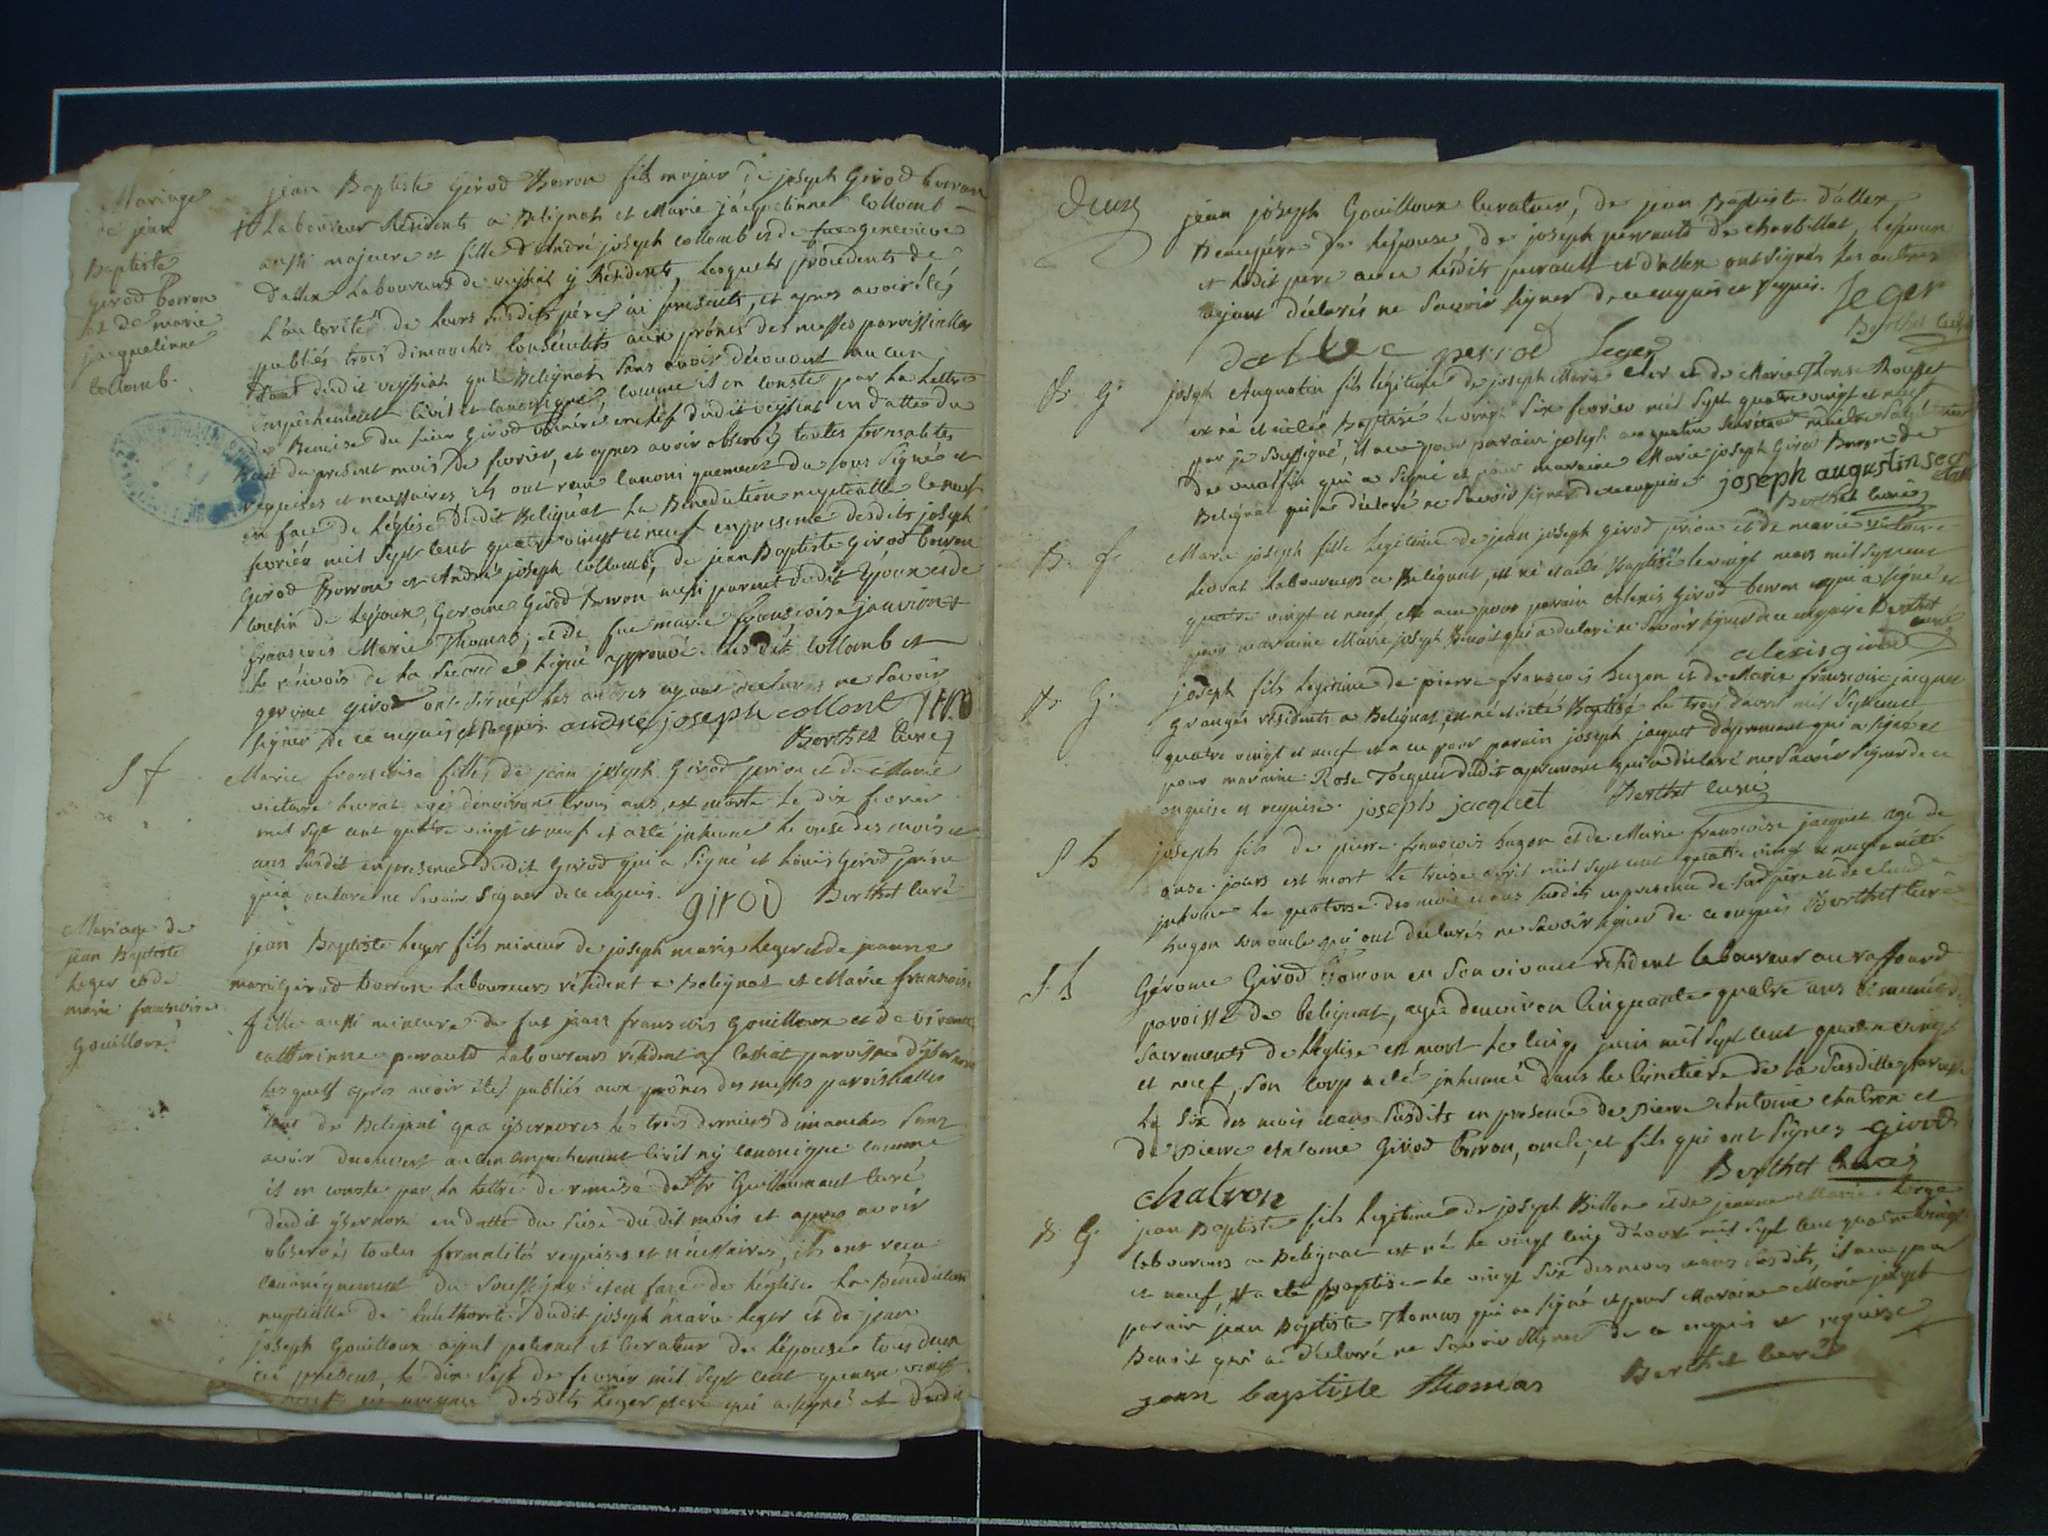 Mariage
de jean
Baptiste
girod borron
et de marie
jacquelinne
collomb.
jean Baptiste Girod Borron fils majeur de joseph Girod borron
Laboureur Résidents a Belignat et Marie jacquelinne Collomb
aussi majeure et fille d'André joseph collomb et de
Laboureurs de veyziat y Residents, lesquels procedents de
L'autorité de leurs susdits péres ici presents, et apres avoir étés
publiés trois dimanches consécutifs aux prônes des messes paroissialles
tant dudit veyziat que Belignat sans avoir découvert aucun
Empêchement civil et canonique, comme il en conste par la Lettre
de Remise du sieur Girod vicaire dudit veyziat en datte du
huit du present mois de fevrier, et apres avoir observés toutes formalités
requises et necessaires, ils ont reçu canoniquement du sous signé et
en face de L'église dudit Belignat La Benediction nuptialle le neuf
fevrier mil sept cent quatre vingt et neuf en presence desdits joseph
Girod Borron et André joseph collomb, de jean Baptiste Girod borron
cousin de L'epoux, Gerome Girod Borron aussi parent dudit Epoux et de
françois Marie Thomas, et de feue marie françoise
Le renvois de la seconde ligne approuvé. Lesdit collomb et
gerome girod ont signés les autres ayant declarés ne savoir
signer de ce requis et requis. andre joseph collont
Berthet curé
S f
Marie françoise fille de jean joseph Girod prion et de Marie
victoire livrat agé d'environ trois ans est morte le dix fevrier
mil sept cent quatre vingt et neuf et a été inhumé le onze des mois et
ans susdit en presence dudit Girod qui a signé et Louis Girod
qui a declaré ne savoir signer de ce enquis. girod Berthet curé
Mariage de
jean Baptiste
leger et de
marie françoise
gouilloux
jean Baptiste leger fils mineur de joseph marie leger et de jeanne
marie girod borron Laboureurs résident a Belignat et Marie françoise
fille aussi mineure de fut jean françois gouilloux et de vivante
catherinne perraud Laboureurs résident a paroisse d'ysernore
lesquels aprés avoir étés publiés aux prônes des messes paroissialles
tant de Belignat qua ysernores les trois derniers dimanches sans
avoir decouvert aucun empechement civil ny canonique comme
il en conste par la Lettre de remise de Sr Guillaumaut curé
dudit ysernore en datte du seize dudit mois et apres avoir
observés toutes formalités requises et nécessaires, ils ont reçu
canoniquement du soussigné et en face de l'église la Bénédiction
nuptialle de l'authorité dudit joseph marie leger et de jean
joseph Gouilloux ayeul paternel et curateur de L'épouse tous deux
ici présent, le dix sept de fevrier mil sept cent quatre vingt
et neuf en presence desdits Leger pere qui a signé et dudit
Deux
jean joseph Gouilloux curateur, de jean Baptiste d'allex
Beaupére de L'épouse, de joseph perraud de charbillat, L'epoux
et ledit pere avec lesdits perrault et d'allex ont signés les autres
ayant déclarés ne savoir signer de ce enquis et requis. leger
dallex perrod leger Berthet curé
B. G.
joseph Augustin fils légitime de joseph Marie et de Marie Therese Rousset
est né et a été Baptisé le vingt six fevrier mil sept quatre vingt et neuf
par je Soussigné, il a eu pour parain joseph augustin secretant
qui a signé et pour maraine Marie joseph Girod Borron de
Belignat qui a déclaré ne savoir signer de ce enquise joseph augustin sec
Berthet curé
B. f.
Marie joseph fille legitime de jean joseph girod prion et de marie victoire
livrat Laboureurs a Belignat, est né et a été Baptisé le vingt mars mil sept cent
quatre vingt et neuf, elle a eu pour parain Alexis girod borron qui a signé et
pour maraine Marie joseph Benoit qui a declaré ne savoir signer de ce enquise Berthet
curé
alexis girod
B. G.
joseph fils legitime de pierre françois hugon et de Marie françoise jacquet
granger résidents a Belignat, est né et a été Baptisé le trois d'avril mil sept cent
quatre vingt et neuf il a eu pour parain joseph jacquet d'apremont qui a signé et
pour maraine Rose Jacquet dudit apremont qui a déclaré ne savoir signer de ce
enquise et requise. joseph jacquet Berthet curé
S. h
joseph fils de pierre françois hugon et de Marie françoise jacquet agé de
onze jours est mort le treize avril mil sept cent quatre vingt et neuf a été
inhumé le quatorze des mois et ans susdits en presence de son pére et de claude
hugon son oncle qui ont declarés ne savoir signer de ce enquis Berthet curé
S. h
Gérome Girod Borron en son vivant résident laboureur au raffourd
paroisse de belignat, agé d'environ cinquante quatre ans et muni des
Sacrements de L'église est mort le cinq juin mil sept cent quatre vingt
et neuf, son corp a été inhumé dans le cimetière de la susditte paroisse
le six des mois et ans susdits en presence de pierre Antoine chatron et
de pierre Antoine Girod borron, oncle, et fils qui ont signés girod
chatron Berthet curé
B. G.
jean Baptiste fils legitime de joseph Billon et de jeanne Marie
laboureurs a Belignat est né le vingt cinq d'aoust mil sept cent quatre vingt
et neuf, il a été Baptisé le vingt six des mois et ans susdits, il a eu pour
parain jean Baptiste Thomas qui a signé et pour Maraine Marie joseph
Benoit qui a déclaré ne savoir signer de ce enquis et requise
jean baptiste thomas Berthet curé